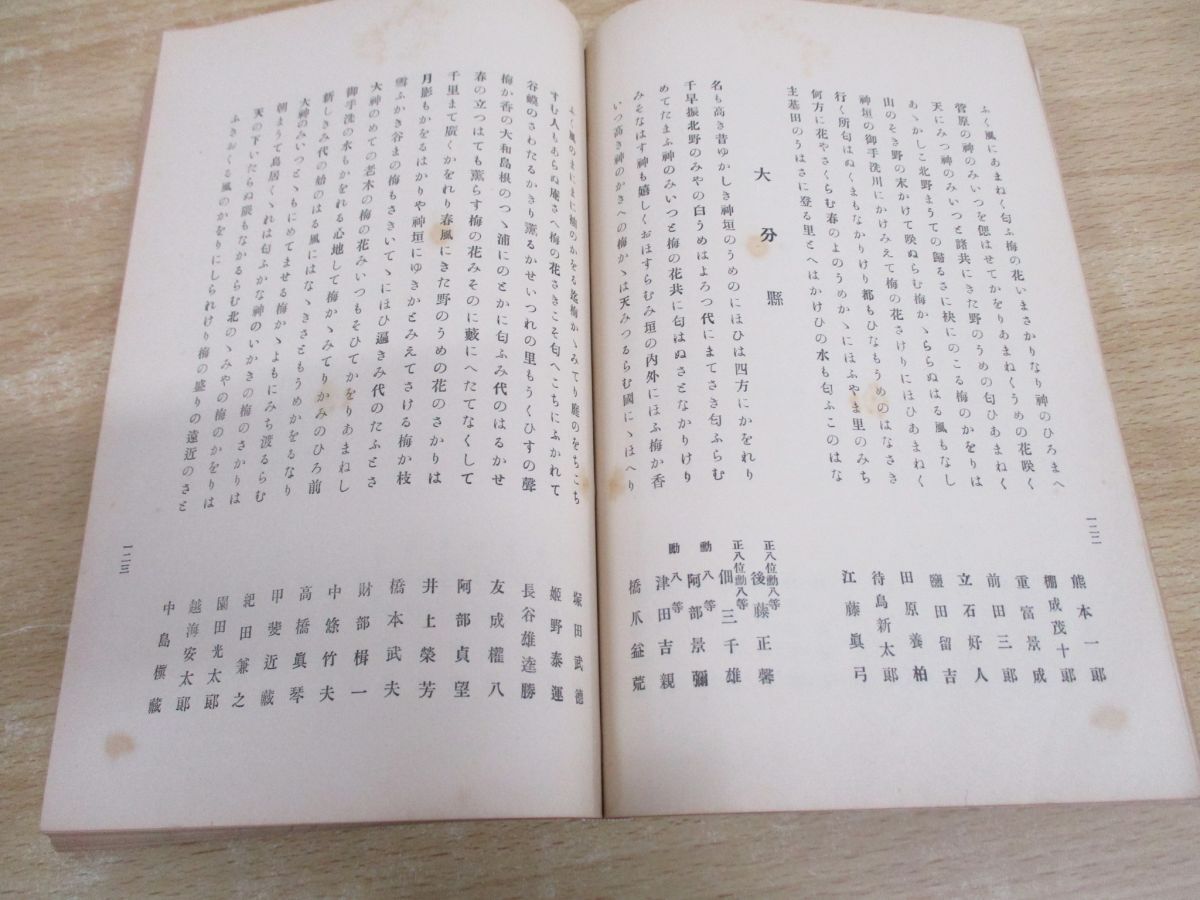 ふく風にあまねく匂ふ梅の花いまさかりなり神のひろまへ　熊本一郎
菅原の神のみいつを偲はせてかをりあまねくうめの花咲く　棚成茂十郎
天にみつ神のみいつと諸共にきた野のうめの匂ひあまねく　重富景成
あゝかしこ北野まうての歸るさに袂にのこる梅のかをりは　前田三郎
山のそき野の末かけて咲ぬらむ梅かゝらぬはる風もなし　立石好人
神垣の御手洗川にかけみえて梅の花さけりにほひあまねく　鹽田留吉
行く所匂はぬくまもなかりけり都もひなもうめのはなさき　田原養柏
何方に花やさくらむ春のよのうめかゝにほふやま里のみち　待島新太郎
主基田のうはさに登る里とへはかけひの水も匂ふこのはな　江藤眞弓
大分縣
名も高き昔ゆかしき神垣のうめのにほひは四方にかをれり　正八位勳八等　後藤正馨
千早振北野のみやの白うめはよろつ代にまてさき匂ふらむ　正八位勳八等　佃三千雄
めてたまふ神のみいつと梅の花共に匂はぬさとなかりけり　勳八等　阿部景彌
みそなはす神も嬉しくおほすらむみ垣の内外にほふ梅か香　勳八等　津田吉親
いつ高き神のかきへの梅かゝは天みつるらむ國にゝほへり　橋爪益荒
一二二
ふく風のまにまに梅のかをる迄梅かゝみてり庭のをちこち　塚田武德
すむ人もあらぬ庵さへ梅の花さきこそ匂へこちにふかれて　姬野泰運
谷峽のさわたるかきり薰るかせいつれの里もうくひすの聲　長谷雄逵勝
梅か香の大和島根のつゝ浦にのとかに匂ふみ代のはるかせ　友成權八
春の立つはても薰らす梅の花みそのに藪にへたてなくして　阿部貞望
千里まて廣くかをれり春風にきた野のうめの花のさかりは　井上榮芳
月影もかをるはかりや神垣にゆきかとみえてさける梅か枝　橋本武夫
雪ふかき谷まの梅もさきいてゝにほひ遍きみ代のたふとさ　財部楫一
大神のめての老木の梅の花みいつもそひてかをりあまねし　中悠竹夫
御手洗の水もかをれる心地して梅かゝみてりかみのひろ前　高橋眞琴
新しきみ代の始のはる風にはなゝきさともうめかをるなり　甲斐近藏
大神のみいつとゝもにめてませる梅かゝよもにみち渡るらむ　紀田兼之
朝まうて鳥居くゝれは匂ふかな神のいかきの梅のさかりは　園田光太郎
天の下いたらぬ隈もなかるらむ北のゝみやの梅のかをりは　越海安太郎
ふきおくる風のかをりにしられけり梅の盛りの遠近のさと　中島槇藏
一二三